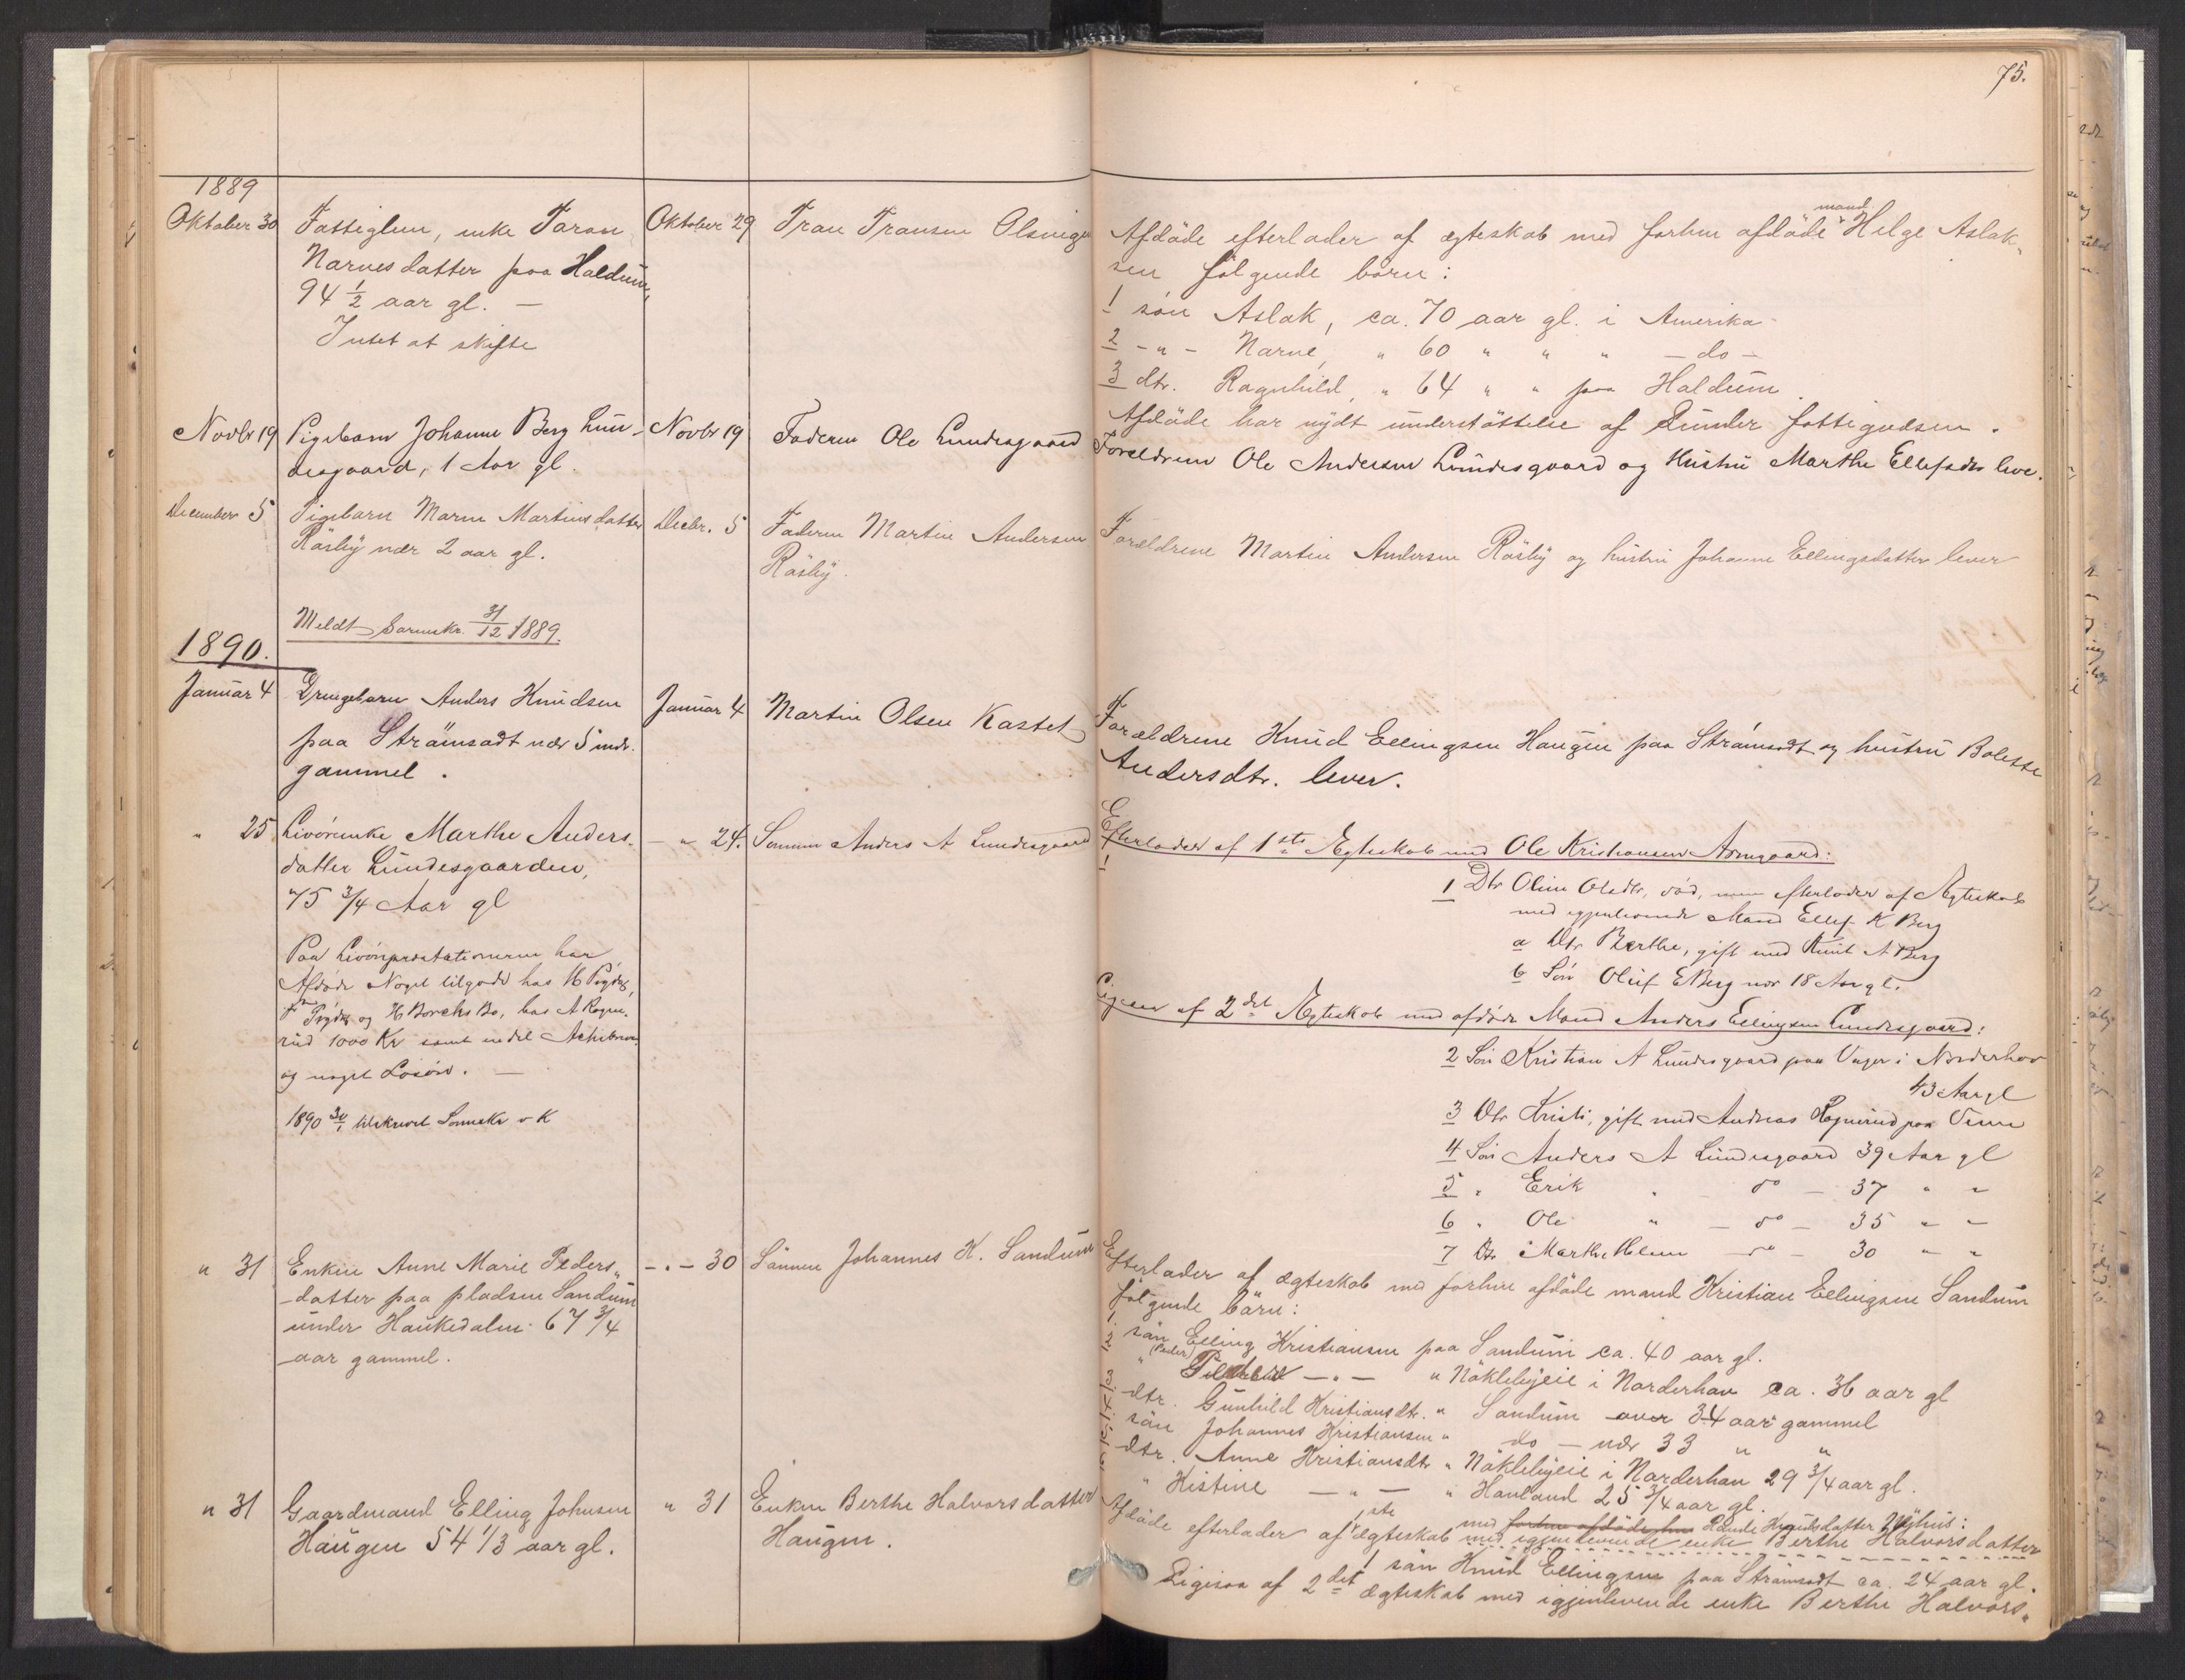 75.
1889
Oktober 30
Fattiglem, enke Taran
Narvesdatter paa Haldum,
94 1/2 aar gl. —
Intet at skifte
Oktober 29
Tran Transen Olsingen
Afdøde efterlader af ægteskab med forhen afdøde mand Helge Aslak-
sen følgende børn:
1 søn Aslak, ca. 70 aar gl. i Amerika
2 -"- Narve, " 60 " " " - do -
3 dtr. Ragnhild, " 64 " " paa Haldum.
Afdøde har nydt understøttelse af Lunder fattigvæsen.
Novbr 19
Pigebarn Johanne Berg Lun-
desgaard, 1 Aar gl.
Novbr 19
Faderen Ole Lundesgaard
Forældrene Ole Andersen Lundesgaard og Hustru Marthe Ellefsdtr leve.
December 5
Pigebarn Maren Martinsdatter
Råsby nær 2 aar gl.
Decbr. 5
Faderen Martin Andersen
Råsby.
Forældrene Martin Andersen Råsby og hustru Johanne Ellingsdatter lever
Meldt Sorenskr. 31/12 1889.
1890.
Januar 4
Drengebarn Anders Knudsen
paa Strømsodt nær 5 mdr.
gammel.
Januar 4
Martin Olsen Kastet
Forældrene Knud Ellingsen Haugen paa Strømsodt og hustru Bolette
Andersdtr. lever.
" 25
Livørenke Marthe Anders-
datter Lundesgaarden,
75 3/4 Aar gl
Paa Livørprestationerne har
Afdøde Noget tilgode hos
og H Borchs Bo, hos A Rogne-
rud 1000 Kr samt en del
og noget Løsøre. —
1890 30/1 tilskrevet Sorenskr v K
— " 24.
Sønnen Anders A Lundesgaard
Efterlader af 1ste Ægteskab med Ole Kristiansen
1 Dtr Oline Olsdtr, død, men efterlader af Ægteskab
med igjenlevende Mand Ellef K Berg
a Dtr Berthe, gift med Knut A Berg
b Søn Oluf E Berg nær 18 Aar gl.
Ligesaa af 2det Ægteskab med afdøde Mand Anders Ellingsen Lundesgaard:
2 Søn Kristian A Lundesgaard paa i Norderhov
43 Aar gl
3 Dtr Kristi, gift med Andreas Rognerud paa
4 Søn Anders A Lundesgaard 39 Aar gl
5 " Erik " - do - 37 " "
6 " Ole " - do - 35 " "
7 Dtr Marthe Helene - do - 30 " "
" 31
Enken Anne Marie Peders-
datter paa pladsen Sandum
under Haukedalen 67 3/4
aar gammel.
— " — 30
Sønnen Johannes K. Sandum
Efterlader af ægteskab med forhen afdøde mand Kristian Ellingsen Sandum
følgende børn:
1 søn Elling Kristiansen paa Sandum ca. 40 aar gl.
2 " (Peder) Peder — " — " Nøklebyeie i Norderhov ca. 36 aar gl
3 dtr. Gunhild Kristiansdtr. " Sandum over 34 aar gammel
4 søn Johannes Kristiansen " do — nær 33 " "
5 dtr. Anne Kristiansdtr " Nøklebyeie i Norderhov 29 3/4 aar gl.
6 " Kistine — " — " Hanland 25 3/4 aar gl.
" 31
Gaardmand Elling Johnsen
Haugen 54 1/3 aar gl.
" 31
Enken Berthe Halvorsdatter
Haugen.
Afdøde efterlader af 1ste ægteskab med forhen afdøde hus Rande Knudsdatter Nyhus:
med igjenlevende enke Berthe Halvorsdatter
1 søn Knud Ellingsen paa Strømsodt ca. 24 aar gl.
Ligesaa af 2det ægteskab med igjenlevende enke Berthe Halvors-